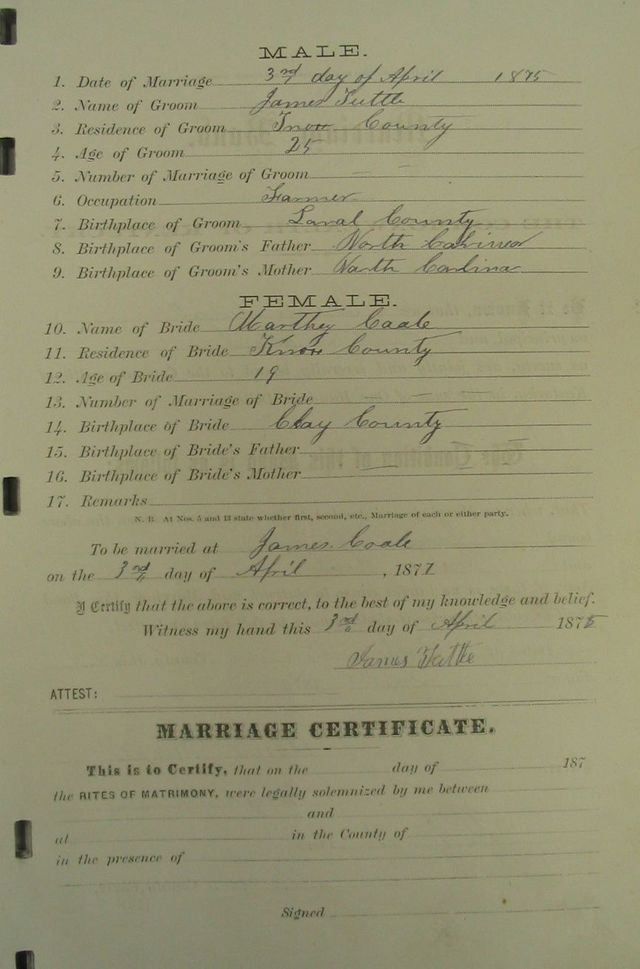 MALE.
1. Date of Marriage 3rd day of April 1875
2. Name of Groom James Tuttle
3. Residence of Groom Knox County
4. Age of Groom 25
5. Number of Marriage of Groom
6. Occupation Farmer
7. Birthplace of Groom Laral County
8. Birthplace of Groom's Father North
9. Birthplace of Groom's Mother North Carlina
FEMALE.
10. Name of Bride Marthey Coale
11. Residence of Bride Knox County
12. Age of Bride 19
13. Number of Marriage of Bride
14. Birthplace of Bride Clay County
15. Birthplace of Bride's Father
16. Birthplace of Bride's Mother
17. Remarks
N. B. At Nos. 5 and 13 state whether first, second, etc., Marriage of each or either party.
To be married at James Coale
on the 3rd day of April, 187
I Certify that the above is correct, to the best of my knowledge and belief.
Witness my hand this 3rd day of April 1875
James Tuttle
ATTEST:
MARRIAGE CERTIFICATE.
This is to Certify, that on the day of 187
the RITES OF MATRIMONY, were legally solemnized by me between
and
at in the County of
in the presence of
Signed